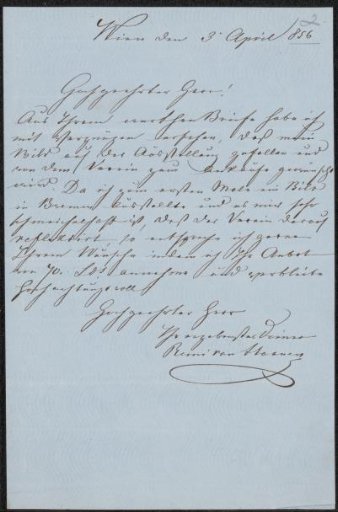 2
Wien den 3 April 856
Hochgeehrter Herr!
Aus Ihrem werthen Briefe habe ich
mit Vergnügen ersehen, daß mein
Bild auf der Ausstellung gefallen und
von dem Verein zum Ankaufe gewünscht
wird. Da ich zum ersten Male ein Bild
in Bremen ausstellte und es mir sehr
schmeichelhaft ist, daß der Verein darauf
reflektirt, so entspreche ich gerne
Ihrem Wunsche indem ich Ihr Anbot
von 70. annehme und verbleibe
Hochachtungsvoll
Hochgeehrter Herr
Ihr ergebenster Diener
Remi van Haanen